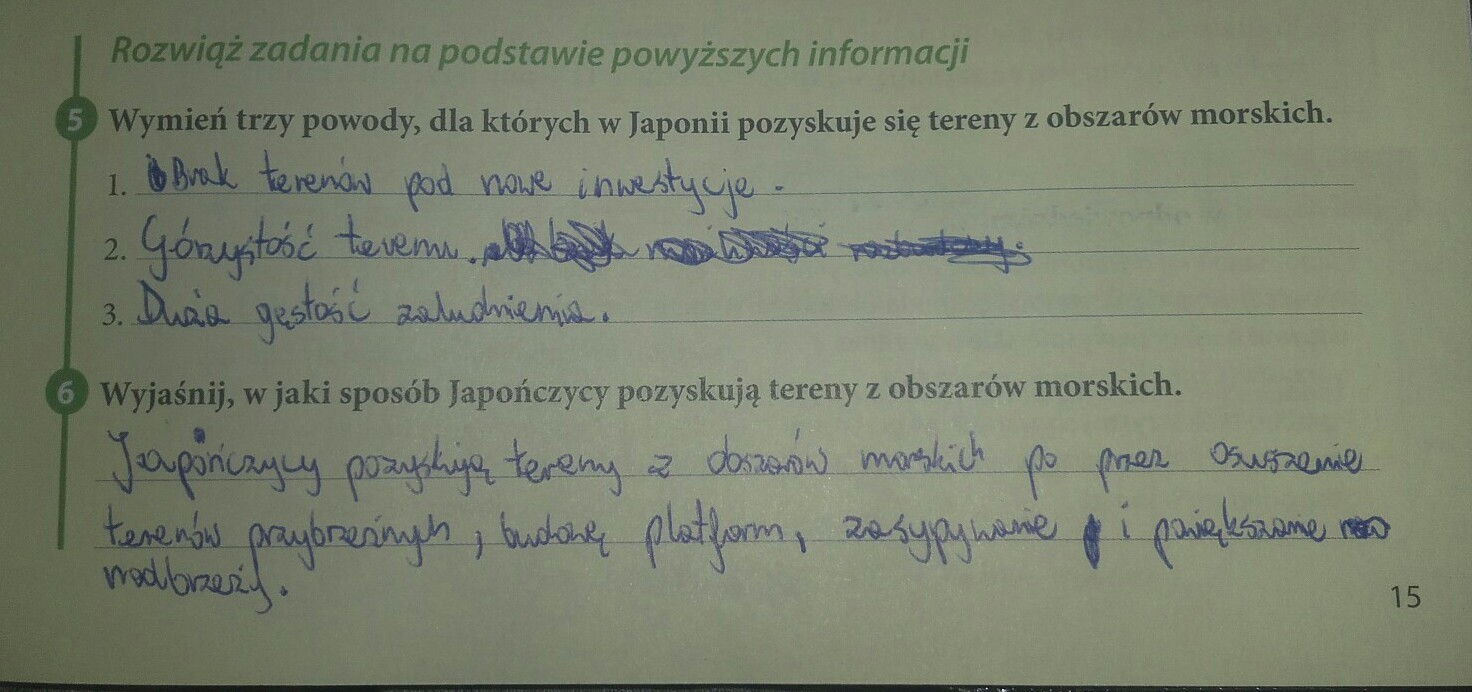 Rozwiąż zadania na podstawie powyższych informacji
5 Wymień trzy powody, dla których w Japonii pozyskuje się tereny z obszarów morskich.
1. Brak terenów pod nowe inwestycje.
2. Górzystość terenu.
3. Duża gęstość zaludnienia.
6 Wyjaśnij, w jaki sposób Japończycy pozyskują tereny z obszarów morskich.
Japończycy pozyskują tereny z obszarów morskich po przez osuszenie
terenów przybrzeżnych, budowę platform, zasypywanie i powiększanie
nadbrzeży.
15